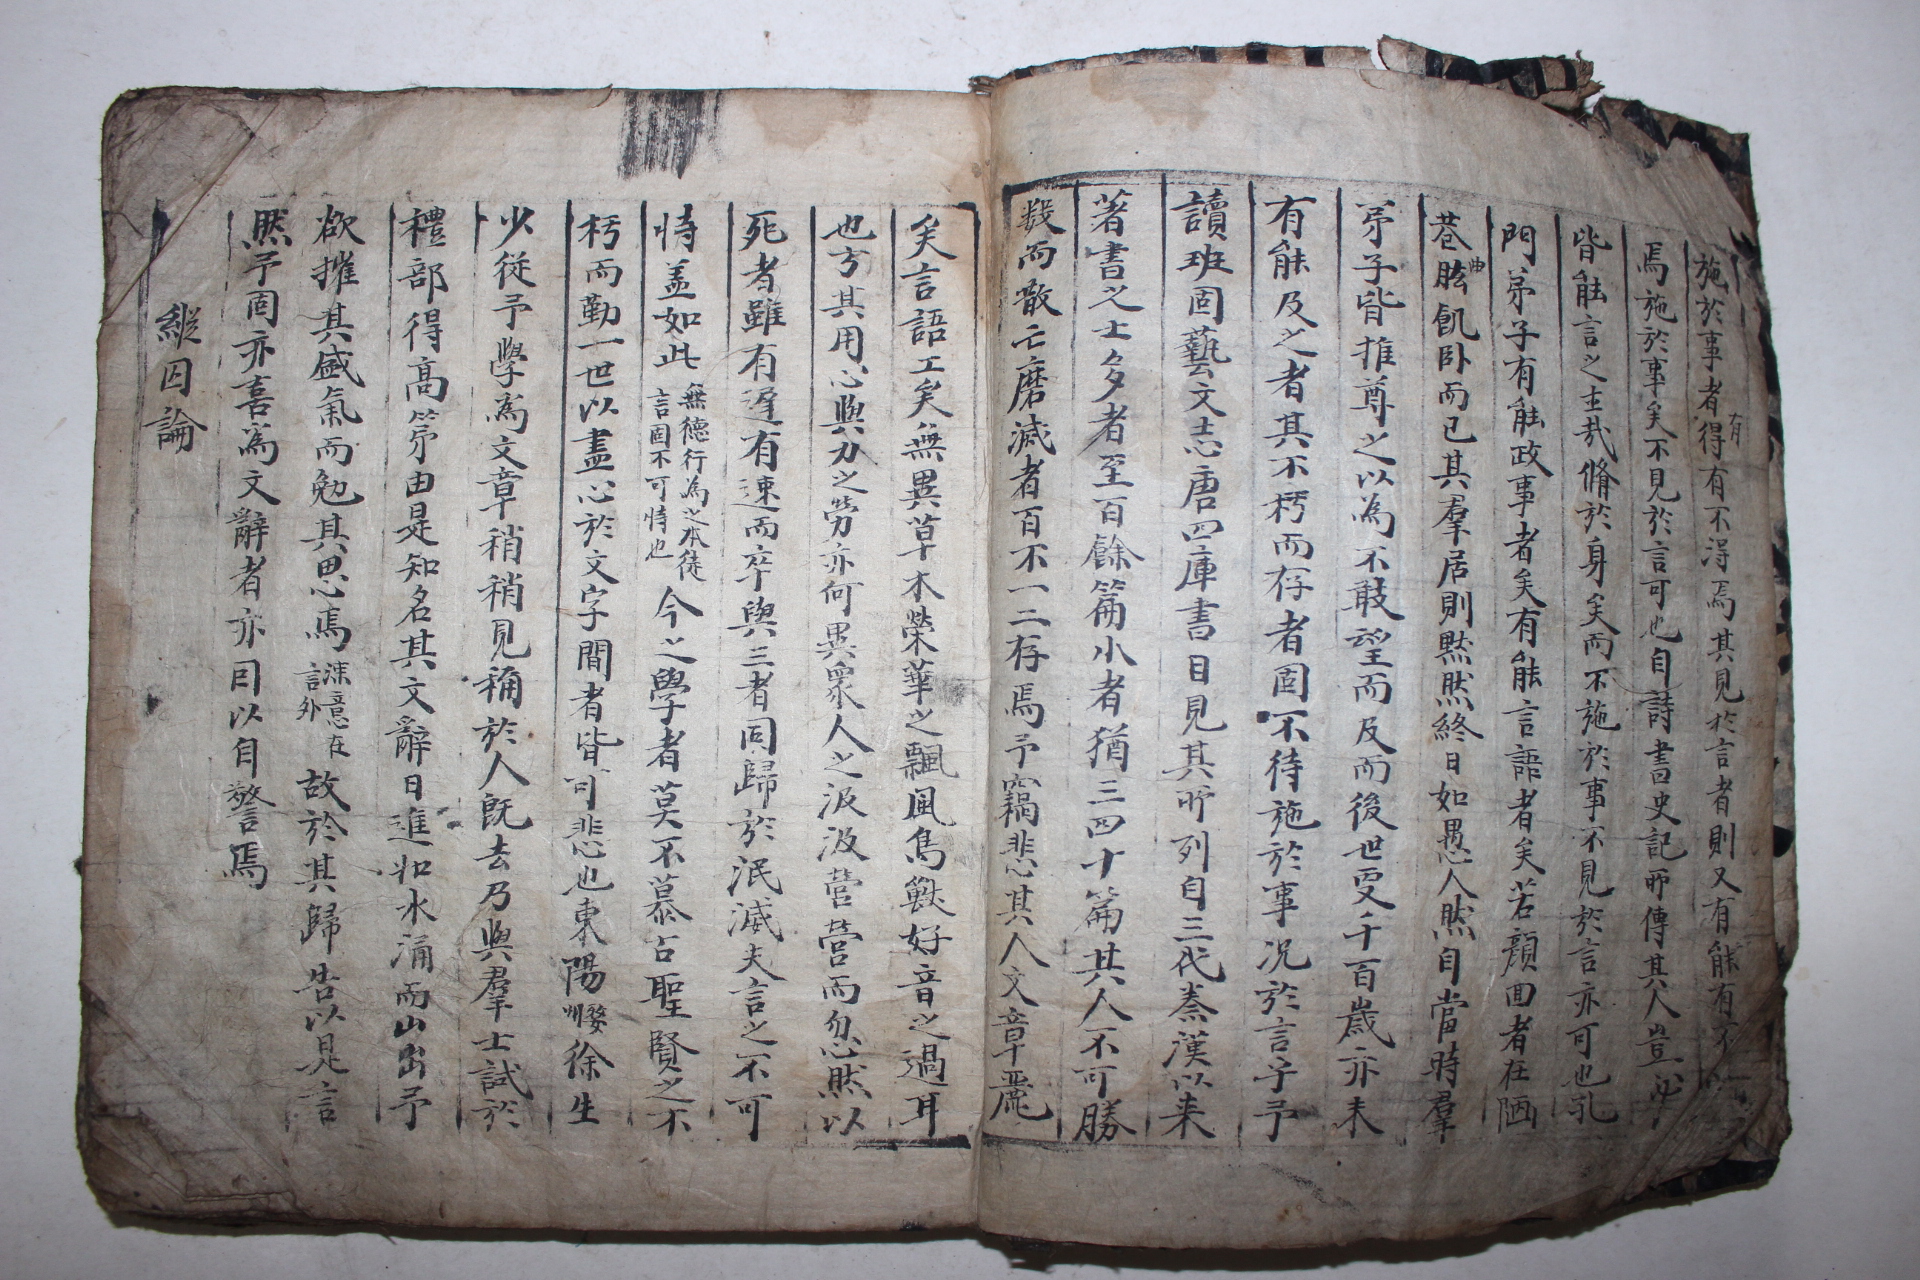 施於事者得有不得焉其見於言者則又有能有不
有
焉施於事矣不見於言可也自詩書史記所傳其人豈必
皆能言之士哉脩於身矣而不施於事不見於言亦可也孔
門弟子有能政事者矣有能言語者矣若顔回者在陋
巷肱飢卧而已其羣居則黙然終日如愚人然自當時羣
曲
弟子皆推尊之以為不敢望而及而後世更千百歲亦未
有能及之者其不朽而存者固不待施於事况於言乎予
讀班固藝文志唐四庫書目見其所列自三代秦漢以来
著書之士多者至百餘篇小者猶三四十篇其人不可勝
數而散亡磨滅者百不一二存焉予竊悲其人文章麗
矣言語工矣無異草木榮華之飄風鳥獸好音之過耳
也方其用心與力之勞亦何異衆人之汲汲營營而忽然以
死者雖有遲有速而卒與三者同歸於泯滅夫言之不可
恃盖如此
無德行為之本徒
言固不可恃也
今之學者莫不慕古聖賢之不
朽而勤一世以盡心於文字間者皆可悲也東陽
婺
州
徐生
少從予學為文章稍稍見稱於人既去乃與羣士試於
禮部得高第由是知名其文辭日進如水涌而山出予
欲摧其盛氣而勉其思焉
意在
言外
故於其歸告以是言
然予固亦喜為文辭者亦因以自警焉
縱囚論